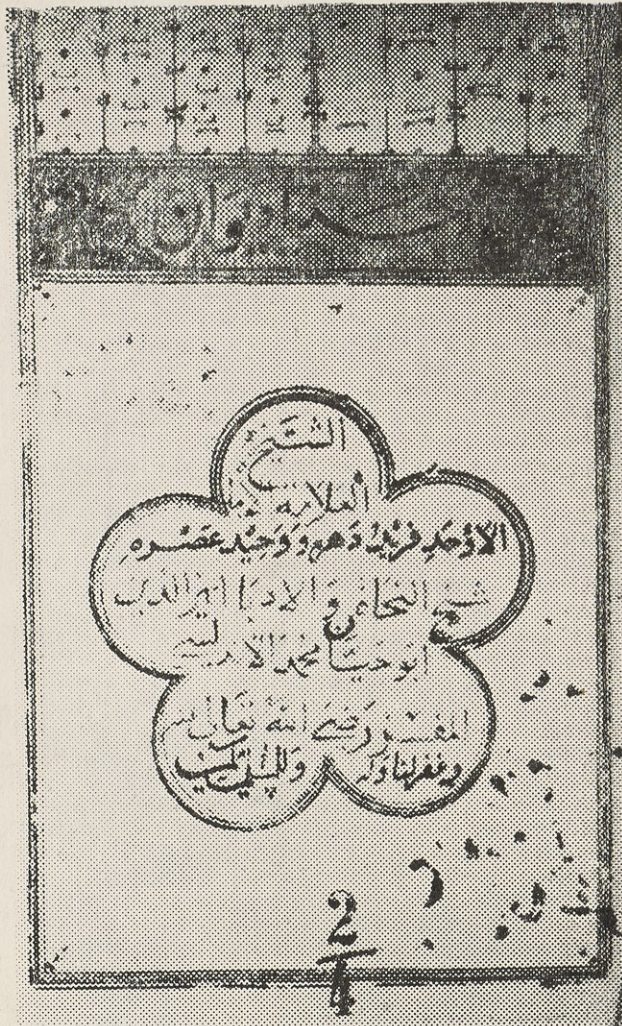 ديوان
الشيخ
العلامة
الأوحد فريد دهره ووحيد عصره
شيخ النحاة والأدبا أثير الدين
أبو حيان محمد الأندلسي
المفسر رضي الله تعالى عنه
وغفر لنا وله وللمسلمين
2
4